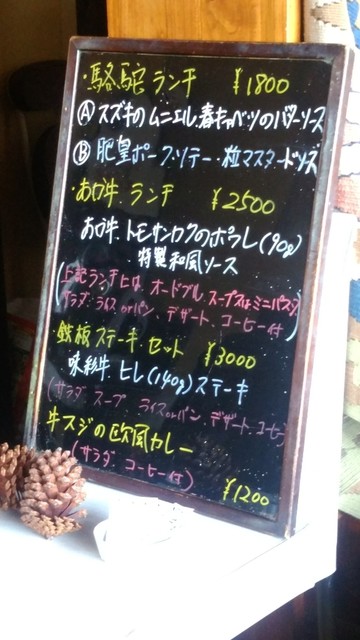 ・駱駝ランチ ¥1800
Ⓐスズキのムニエル.春キャベツのバターソース
Ⓑ肥皇ポーク.ソテー・粒マスタードソース
・あか牛.ランチ ¥2500
あか牛.トモサンカクのポワレ(90g)
特製和風ソース
(上記ランチには、オードブル.スープ又はミニパスタ
サラダ.ライスorパン、デザート.コーヒー付)
・鉄板ステーキ.セット ¥3000
味彩牛.ヒレ(140g)ステーキ
(サラダ.スープ ライスorパン・デザート.コーヒー
牛スジの欧風カレー
(サラダ.コーヒー付)
¥1200